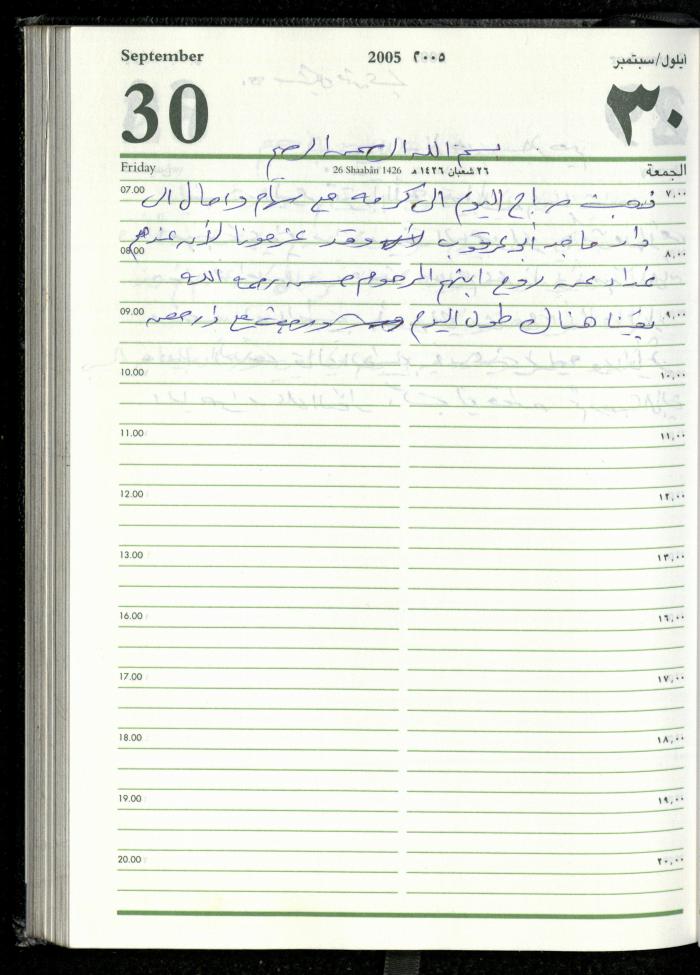 September 2005 ٢٠٠٥ أيلول/سبتمبر
30 ٣٠
بسم الله الرحمن الرحيم
Friday 26 Shaabān 1426 ٢٦ شعبان ١٤٢٦ هـ الجمعة
07.00 ذهبت صباح اليوم الى كرمه مع سهام وامال الى ٧,٠٠
دار ماجد أبو عرقوب وقد عزمونا لأن عندهم
08.00 ٨,٠٠
غداء عن روح ابنهم المرحوم حسن رحمه الله
09.00 بقينا هناك طول اليوم ٩,٠٠
10.00 ١٠,٠٠
11.00 ١١,٠٠
12.00 ١٢,٠٠
13.00 ١٣,٠٠
16.00 ١٦,٠٠
17.00 ١٧,٠٠
18.00 ١٨,٠٠
19.00 ١٩,٠٠
20.00 ٢٠,٠٠